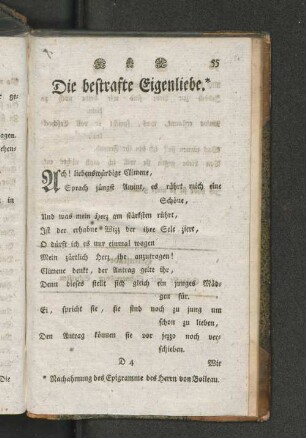 55
Die bestrafte Eigenliebe.*
Ach! liebenswürdige Climene,
Sprach jüngst Amint, es rührt mich eine
Schöne,
Und was mein Herz am stärksten rührt,
Ist der erhabne Witz der ihre Sele ziert,
O dürft ich es nur einmal wagen
Mein zärtlich Herz ihr anzutragen!
Climene denkt, der Antrag gelte ihr,
Denn dieses stellt sich gleich ein junges Mäd-
gen für.
Ei, spricht sie, sie sind noch zu jung um
schon zu lieben,
Den Antrag können sie vor jezzo noch ver-
schieben.
D 4 Wir
* Nachahmung des Epigramms des Herrn von Boileau.
ge-
agen.
ehen-
in
Die